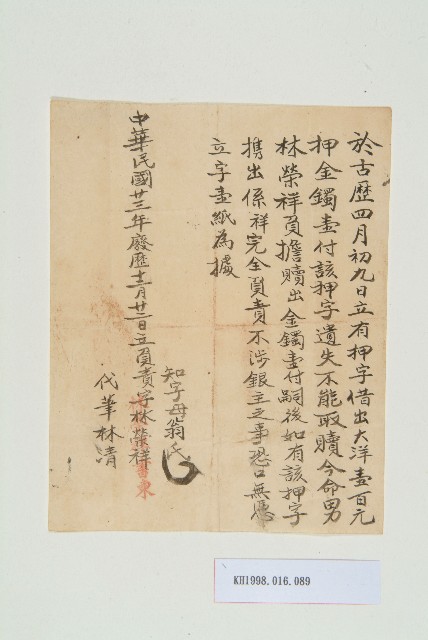 於古歷四月初九日立有押字借出大洋壹百元
押金鐲壹付該押字遺失不能取贖今命男
林榮祥負擔贖出金鐲壹付嗣後如有該押字
攜出係祥完全負責不涉銀主之事恐口無憑
立字壹紙為據
中華民國廿三年廢歷十二月廿二日立負責字林榮祥
知字母翁氏
代筆林清
KH1998.016.089